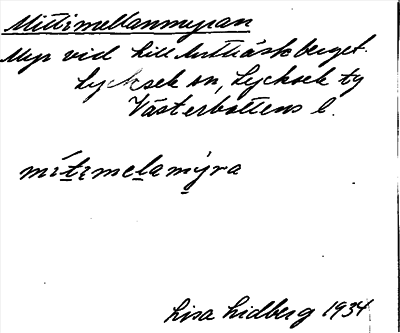 Mittimellanmyran
Myr vid Lill Arttjäskberget.
Lycksele sn, Lycksele tg
Västerbottens l.
mítimelamýra
Lisa Lidberg 1934